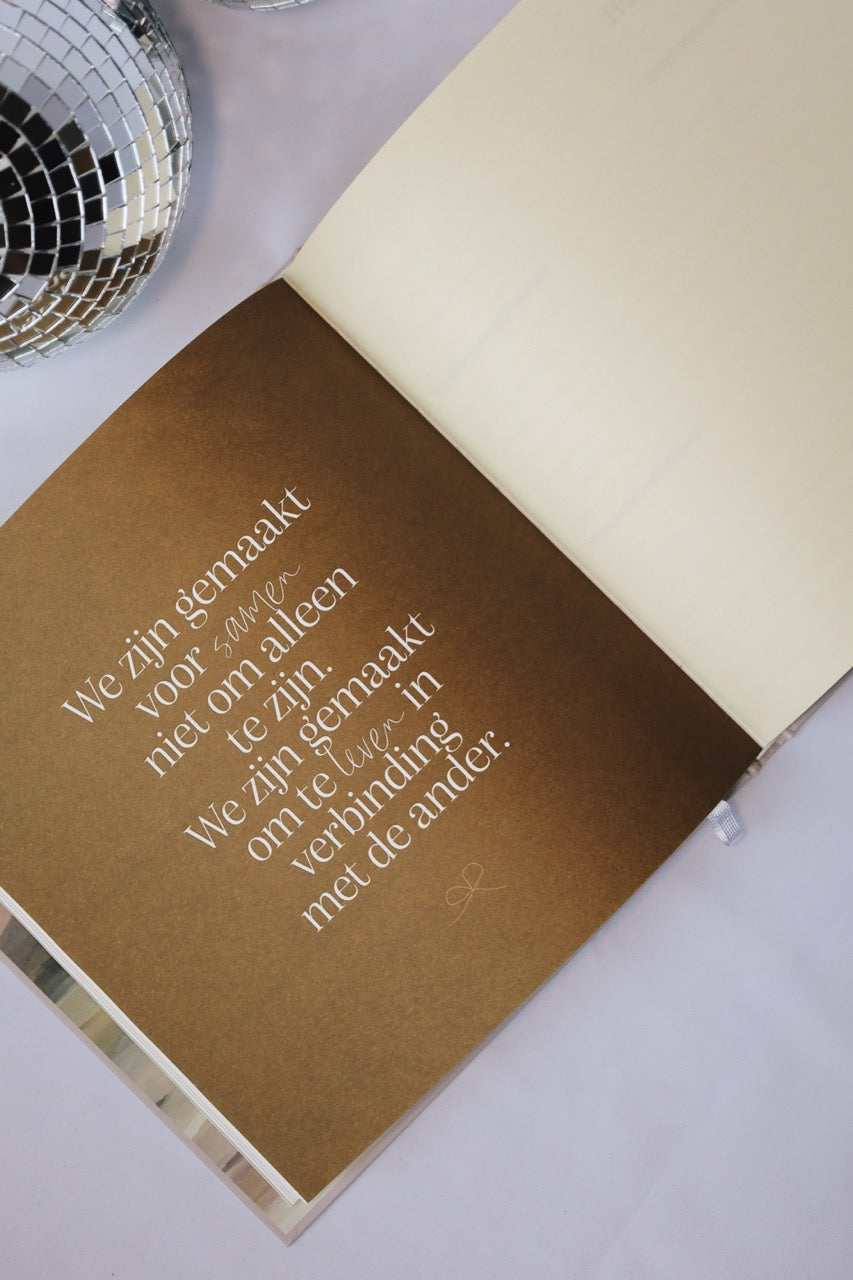 We zijn gemaakt
voor samen
niet om alleen
te zijn.
We zijn gemaakt
om te leven in
verbinding
met de ander.